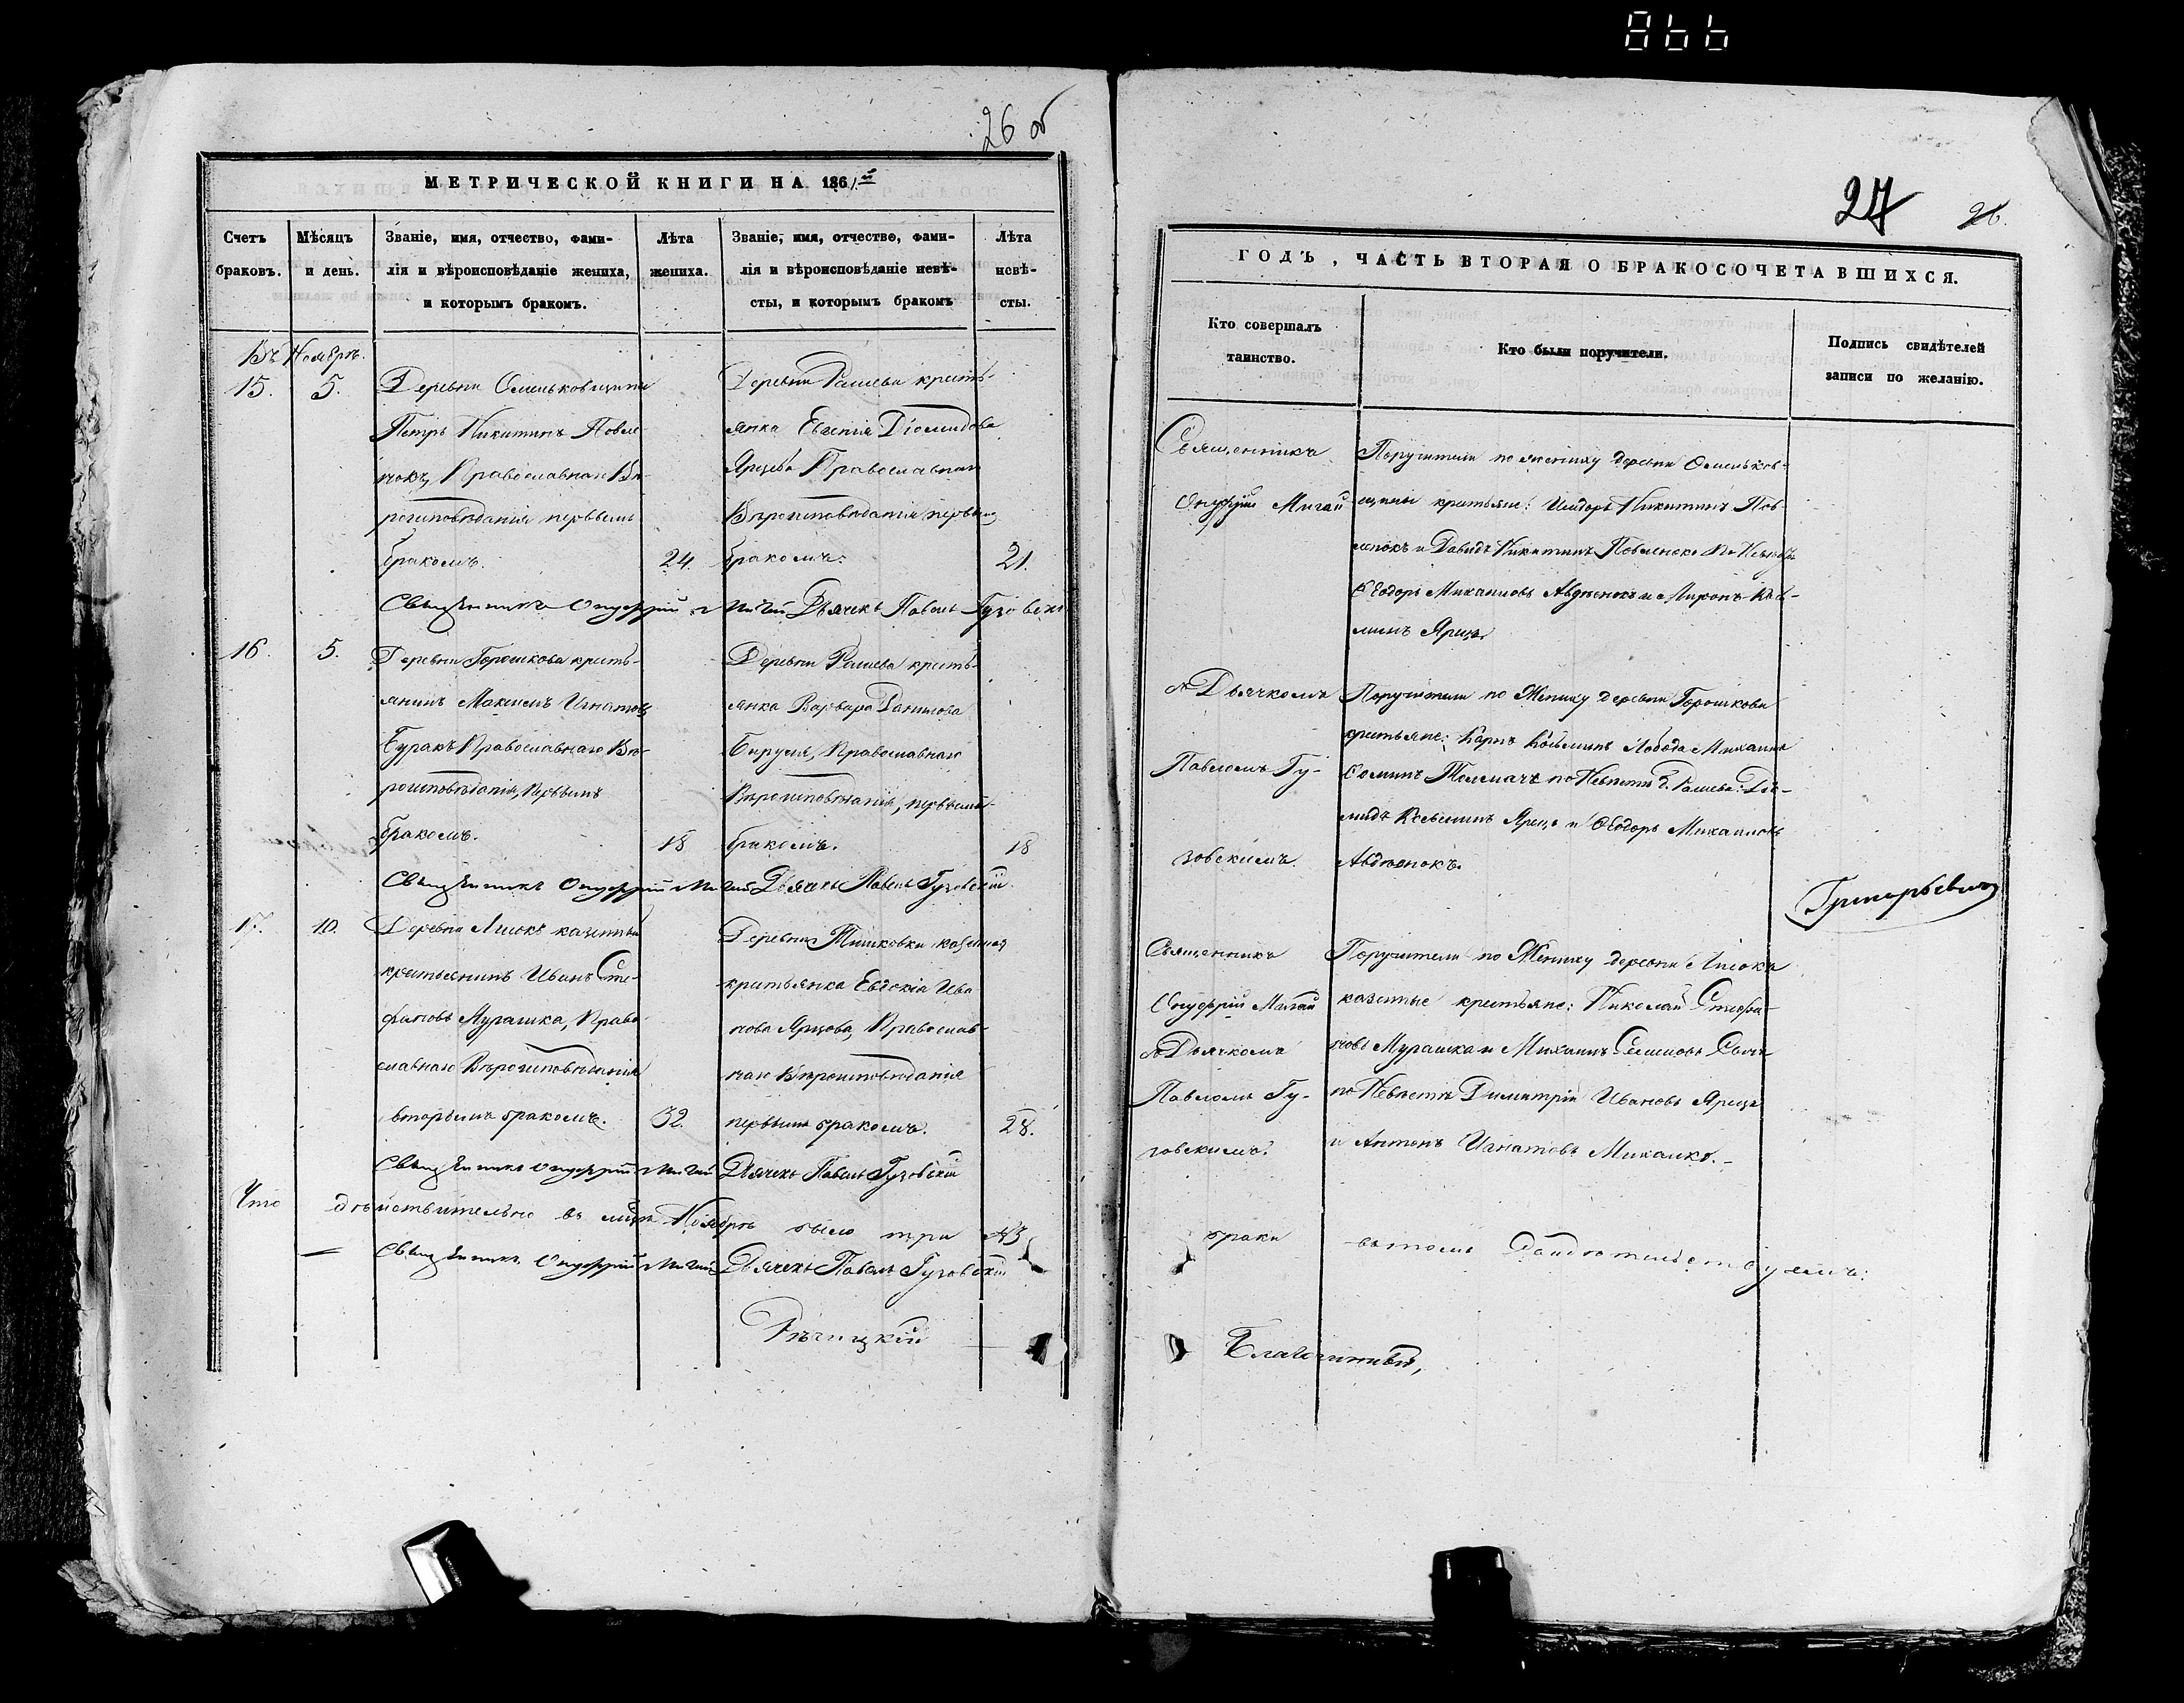 866
26 об
МЕТРИЧЕСКОЙ КНИГИ НА 1861й
Счетъ браковъ.
Мѣсяцъ и день.
Званіе, имя, отчество, фами-
лія и вѣроисповѣданіе жениха,
и которымъ бракомъ.
Лѣта жениха.
Званіе, имя, отчество, фами-
лія и вѣроисповѣданіе невѣ-
сты, и которымъ бракомъ
Лѣта невѣ-
сты.
Въ Ноябрѣ.
15. 5.
Деревни
Петръ Никитинъ
Православнаго Вѣ-
роисповѣданія первымъ
бракомъ. 24.
Деревни Рашева кресть-
янка Евгенія Діомидова
Ярцева Православнаго
Вѣроисповѣданія первымъ
бракомъ. 21.
Священникъ Онуфрій Мигай Дьячекъ Павелъ Гузовскій
16. 5.
Деревни Горошкова кресть-
янинъ Максимъ Игнатовъ
Буракъ Православнаго Вѣ-
роисповѣданія, первымъ
бракомъ. 18
Деревни Рашева кресть-
янка Варвара Данилова
Православнаго
Вѣроисповѣданія, первымъ
бракомъ. 18
Священникъ Онуфрій Мигай Дьячекъ Павелъ Гузовскій.
17. 10.
Деревни Лисокъ казенный
крестьянинъ Иванъ Сте-
фановъ Мурашка, Право-
славнаго Вѣроисповѣданія
вторымъ бракомъ. 32.
Деревни Тишковки казенная
крестьянка Евдокія Ива-
нова Ярцова, Православ-
наго Вѣроисповѣданія
первымъ бракомъ. 28.
Священникъ Онуфрій Мигай Дьячекъ Павелъ Гузовскій
Что дѣйствительно въ мцѣ Ноябрѣ было три № 3
Священникъ Онуфрій Мигай Дьячекъ Павелъ Гузовскій
Рѣчицкій
27 26.
ГОДЪ, ЧАСТЬ ВТОРАЯ О БРАКОСОЧЕТАВШИХСЯ.
Кто совершалъ
таинство.
Кто были поручители.
Подпись свидѣтелей
записи по желанію.
Священникъ
Онуфрій Мигай
съ Дьячкомъ
Павломъ Гу-
зовскимъ.
Поручители по жениху деревни
крестьяне: Никитинъ
и Давидъ Никитинъ
Ѳеодоръ Михаиловъ Авдѣенокъ и Миронъ
Ярецъ.
Поручители по Жениху деревни Горошкова
крестьяне: Карпъ Лобода Михаилъ
Ѳоминъ по Невѣстѣ д. Рашева: Діо-
мидъ Ярецъ и Ѳеодоръ Михаиловъ
Авдѣенокъ.
Григорьевичъ
Священникъ
Онуфрій Мигай
съ Дьячкомъ
Павломъ Гу-
зовскимъ.
Поручители по Жениху деревни Лисокъ
казенные крестьяне: Николай Стефа-
новъ Мурашка и Михаилъ
по Невѣстѣ Димитрій Ивановъ Ярецъ
и Антонъ Игнатовъ Михалко.
браки въ томъ свидѣтельствуемъ:
Благочинный,